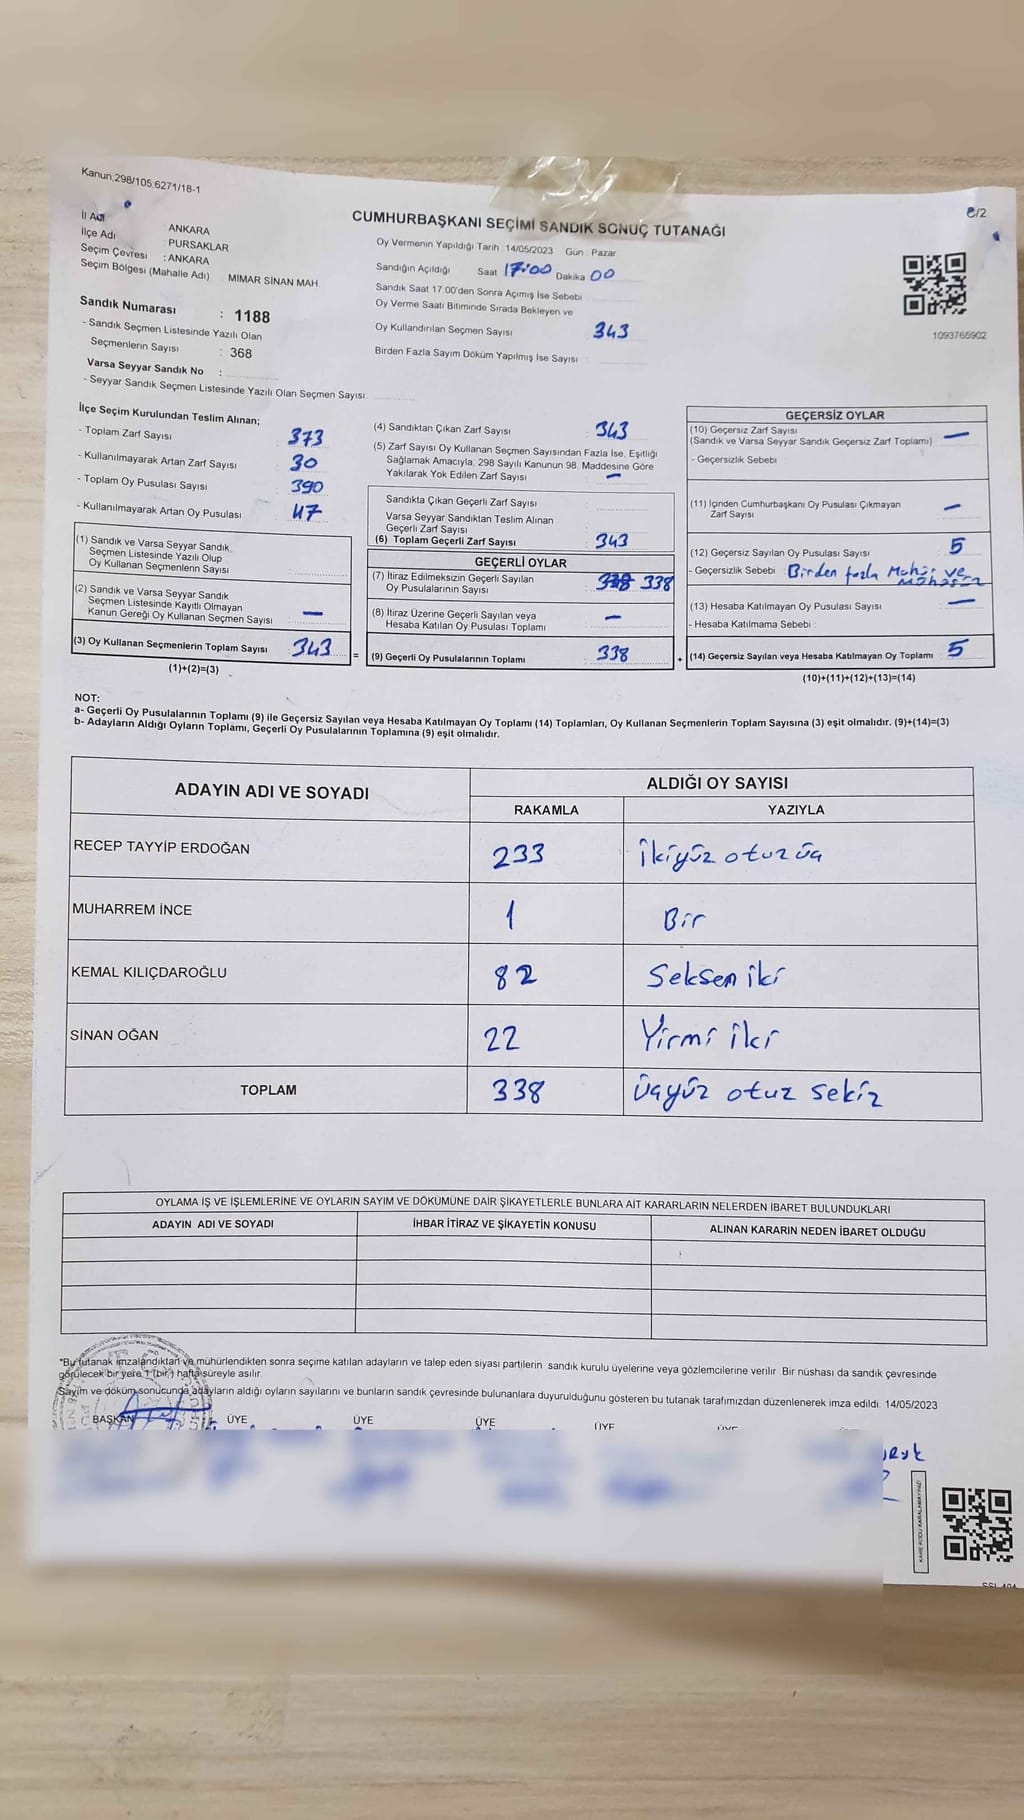 Kanun;298/105.6271/18-1
8/2
CUMHURBAŞKANI SEÇİMİ SANDIK SONUÇ TUTANAĞI
İl Adı : ANKARA
İlçe Adı : PURSAKLAR
Seçim Çevresi : ANKARA
Seçim Bölgesi (Mahalle Adı) : MİMAR SİNAN MAH.
Oy Vermenin Yapıldığı Tarih : 14/05/2023 Gün : Pazar
Sandığın Açıldığı Saat 17:00 Dakika 00
Sandık Saat 17:00'den Sonra Açımış İse Sebebi
Oy Verme Saati Bitiminde Sırada Bekleyen ve
Oy Kullandırılan Seçmen Sayısı 343
Birden Fazla Sayım Döküm Yapılmış İse Sayısı
1093765902
Sandık Numarası : 1188
- Sandık Seçmen Listesinde Yazılı Olan
Seçmenlerin Sayısı : 368
Varsa Seyyar Sandık No :
- Seyyar Sandık Seçmen Listesinde Yazılı Olan Seçmen Sayısı:
İlçe Seçim Kurulundan Teslim Alınan;
- Toplam Zarf Sayısı : 373
- Kullanılmayarak Artan Zarf Sayısı : 30
- Toplam Oy Pusulası Sayısı : 390
- Kullanılmayarak Artan Oy Pusulası : 47
(1) Sandık ve Varsa Seyyar Sandık
Seçmen Listesinde Yazılı Olup
Oy Kullanan Seçmenlerin Sayısı :
(2) Sandık ve Varsa Seyyar Sandık
Seçmen Listesinde Kayıtlı Olmayan
Kanun Gereği Oy Kullanan Seçmen Sayısı : —
(3) Oy Kullanan Seçmenlerin Toplam Sayısı : 343
(1)+(2)=(3)
(4) Sandıktan Çıkan Zarf Sayısı : 343
(5) Zarf Sayısı Oy Kullanan Seçmen Sayısından Fazla İse, Eşitliği
Sağlamak Amacıyla, 298 Sayılı Kanunun 98. Maddesine Göre
Yakılarak Yok Edilen Zarf Sayısı : —
Sandıkta Çıkan Geçerli Zarf Sayısı :
Varsa Seyyar Sandıktan Teslim Alınan
Geçerli Zarf Sayısı :
(6) Toplam Geçerli Zarf Sayısı : 343
GEÇERLİ OYLAR
(7) İtiraz Edilmeksizin Geçerli Sayılan
Oy Pusulalarının Sayısı : 338
(8) İtiraz Üzerine Geçerli Sayılan veya
Hesaba Katılan Oy Pusulası Toplamı : —
= (9) Geçerli Oy Pusulalarının Toplamı : 338
GEÇERSİZ OYLAR
(10) Geçersiz Zarf Sayısı
(Sandık ve Varsa Seyyar Sandık Geçersiz Zarf Toplamı) : —
- Geçersizlik Sebebi :
(11) İçinden Cumhurbaşkanı Oy Pusulası Çıkmayan
Zarf Sayısı : —
(12) Geçersiz Sayılan Oy Pusulası Sayısı : 5
- Geçersizlik Sebebi : Birden fazla Mühür ve
(13) Hesaba Katılmayan Oy Pusulası Sayısı : —
- Hesaba Katılmama Sebebi :
+ (14) Geçersiz Sayılan veya Hesaba Katılmayan Oy Toplamı : 5
(10)+(11)+(12)+(13)=(14)
NOT:
a- Geçerli Oy Pusulalarının Toplamı (9) ile Geçersiz Sayılan veya Hesaba Katılmayan Oy Toplamı (14) Toplamları, Oy Kullanan Seçmenlerin Toplam Sayısına (3) eşit olmalıdır. (9)+(14)=(3)
b- Adayların Aldığı Oyların Toplamı, Geçerli Oy Pusulalarının Toplamına (9) eşit olmalıdır.
ADAYIN ADI VE SOYADI ALDIĞI OY SAYISI
RAKAMLA YAZIYLA
RECEP TAYYİP ERDOĞAN 233 İkiyüz otuz üç
MUHARREM İNCE 1 Bir
KEMAL KILIÇDAROĞLU 82 Seksen iki
SİNAN OĞAN 22 Yirmi iki
TOPLAM 338 üçyüz otuz sekiz
OYLAMA İŞ VE İŞLEMLERİNE VE OYLARIN SAYIM VE DÖKÜMÜNE DAİR ŞİKAYETLERLE BUNLARA AİT KARARLARIN NELERDEN İBARET BULUNDUKLARI
ADAYIN ADI VE SOYADI İHBAR İTİRAZ VE ŞİKAYETİN KONUSU ALINAN KARARIN NEDEN İBARET OLDUĞU
*Bu tutanak imzalandıktan ve mühürlendikten sonra seçime katılan adayların ve talep eden siyasi partilerin sandık kurulu üyelerine veya gözlemcilerine verilir. Bir nüshası da sandık çevresinde
görülecek bir yere 1 (bir) hafta süreyle asılır.
Sayım ve döküm sonucunda adayların aldığı oyların sayılarını ve bunların sandık çevresinde bulunanlara duyurulduğunu gösteren bu tutanak tarafımızdan düzenlenerek imza edildi. 14/05/2023
BAŞKAN ÜYE ÜYE ÜYE ÜYE ÜYE
KARE KODU KARALAMAYINIZ!